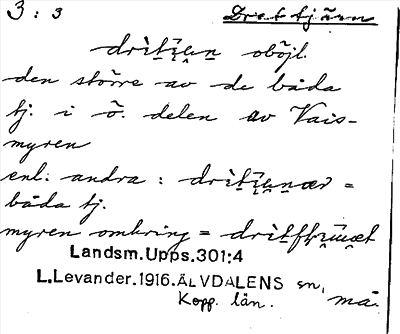 3 : 3 Drettjärn
oböjl.
den större av de båda
tj. i ö. delen av Vais-
myren
enl. andra : =
båda tj.
myren omkring =
Landsm.Upps.301:4
L.Levander.1916.ÄLVDALENS sn,
Kopp. län. må.